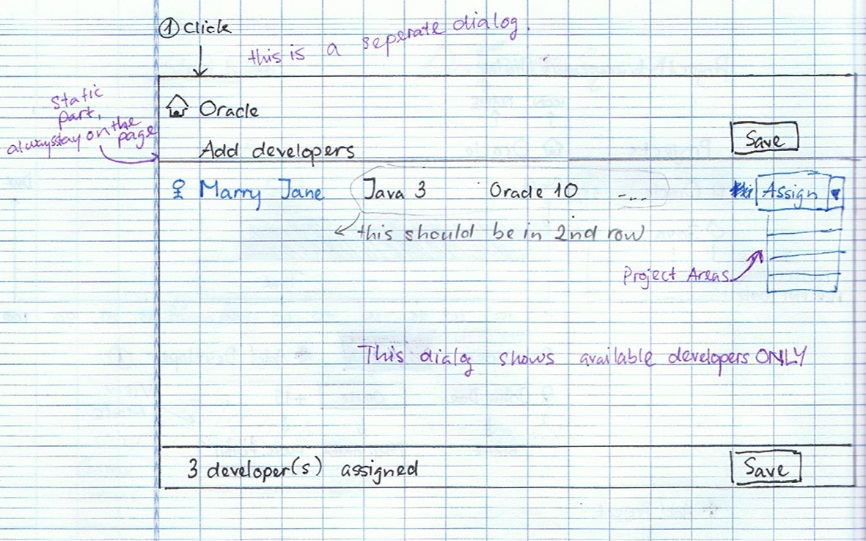 ① Click
this is a seperate dialog.
Static
part,
always stay on the
page
Oracle
Save
Add developers
Marry Jane Java 3 Oracle 10 ... Assign
this should be in 2nd row
Project Areas
This dialog shows available developers ONLY
3 developer(s) assigned Save